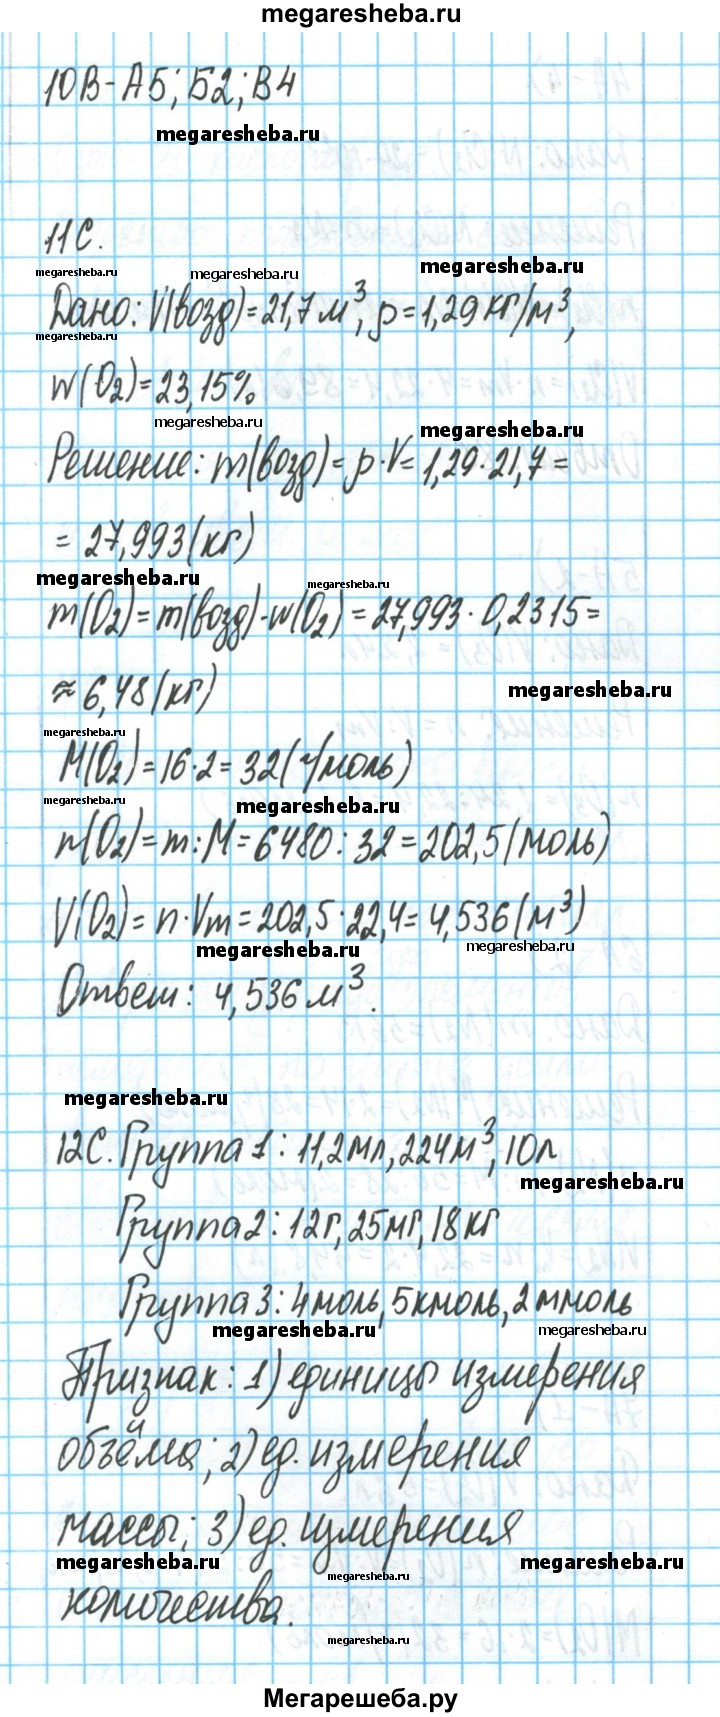 megaresheba.ru
10В-А5; Б2; В4
megaresheba.ru
11С.
megaresheba.ru megaresheba.ru megaresheba.ru
Дано: V(возд)=21,7 м³, p=1,29 кг/м³,
megaresheba.ru
w(O₂)=23,15%
megaresheba.ru megaresheba.ru
Решение: m(возд)=p·V=1,29·21,7=
=27,993(кг)
megaresheba.ru megaresheba.ru
m(O₂)=m(возд)·w(O₂)=27,993·0,2315=
≈6,48(кг)
megaresheba.ru
megaresheba.ru
M(O₂)=16·2=32(г/моль)
megaresheba.ru megaresheba.ru
n(O₂)=m:M=6480:32=202,5(моль)
V(O₂)=n·Vm=202,5·22,4=4,536(м³)
megaresheba.ru megaresheba.ru
Ответ: 4,536 м³.
megaresheba.ru
12С. Группа 1: 11,2мл, 224м³, 10л
megaresheba.ru
Группа 2: 12г, 25мг, 18 кг
Группа 3: 4моль, 5кмоль, 2 ммоль
megaresheba.ru megaresheba.ru
Признак: 1) единицы измерения
объёма; 2) ед. измерения
массы; 3) ед. измерения
megaresheba.ru megaresheba.ru
megaresheba.ru
количества.
megaresheba.ru
Мегарешеба.ру